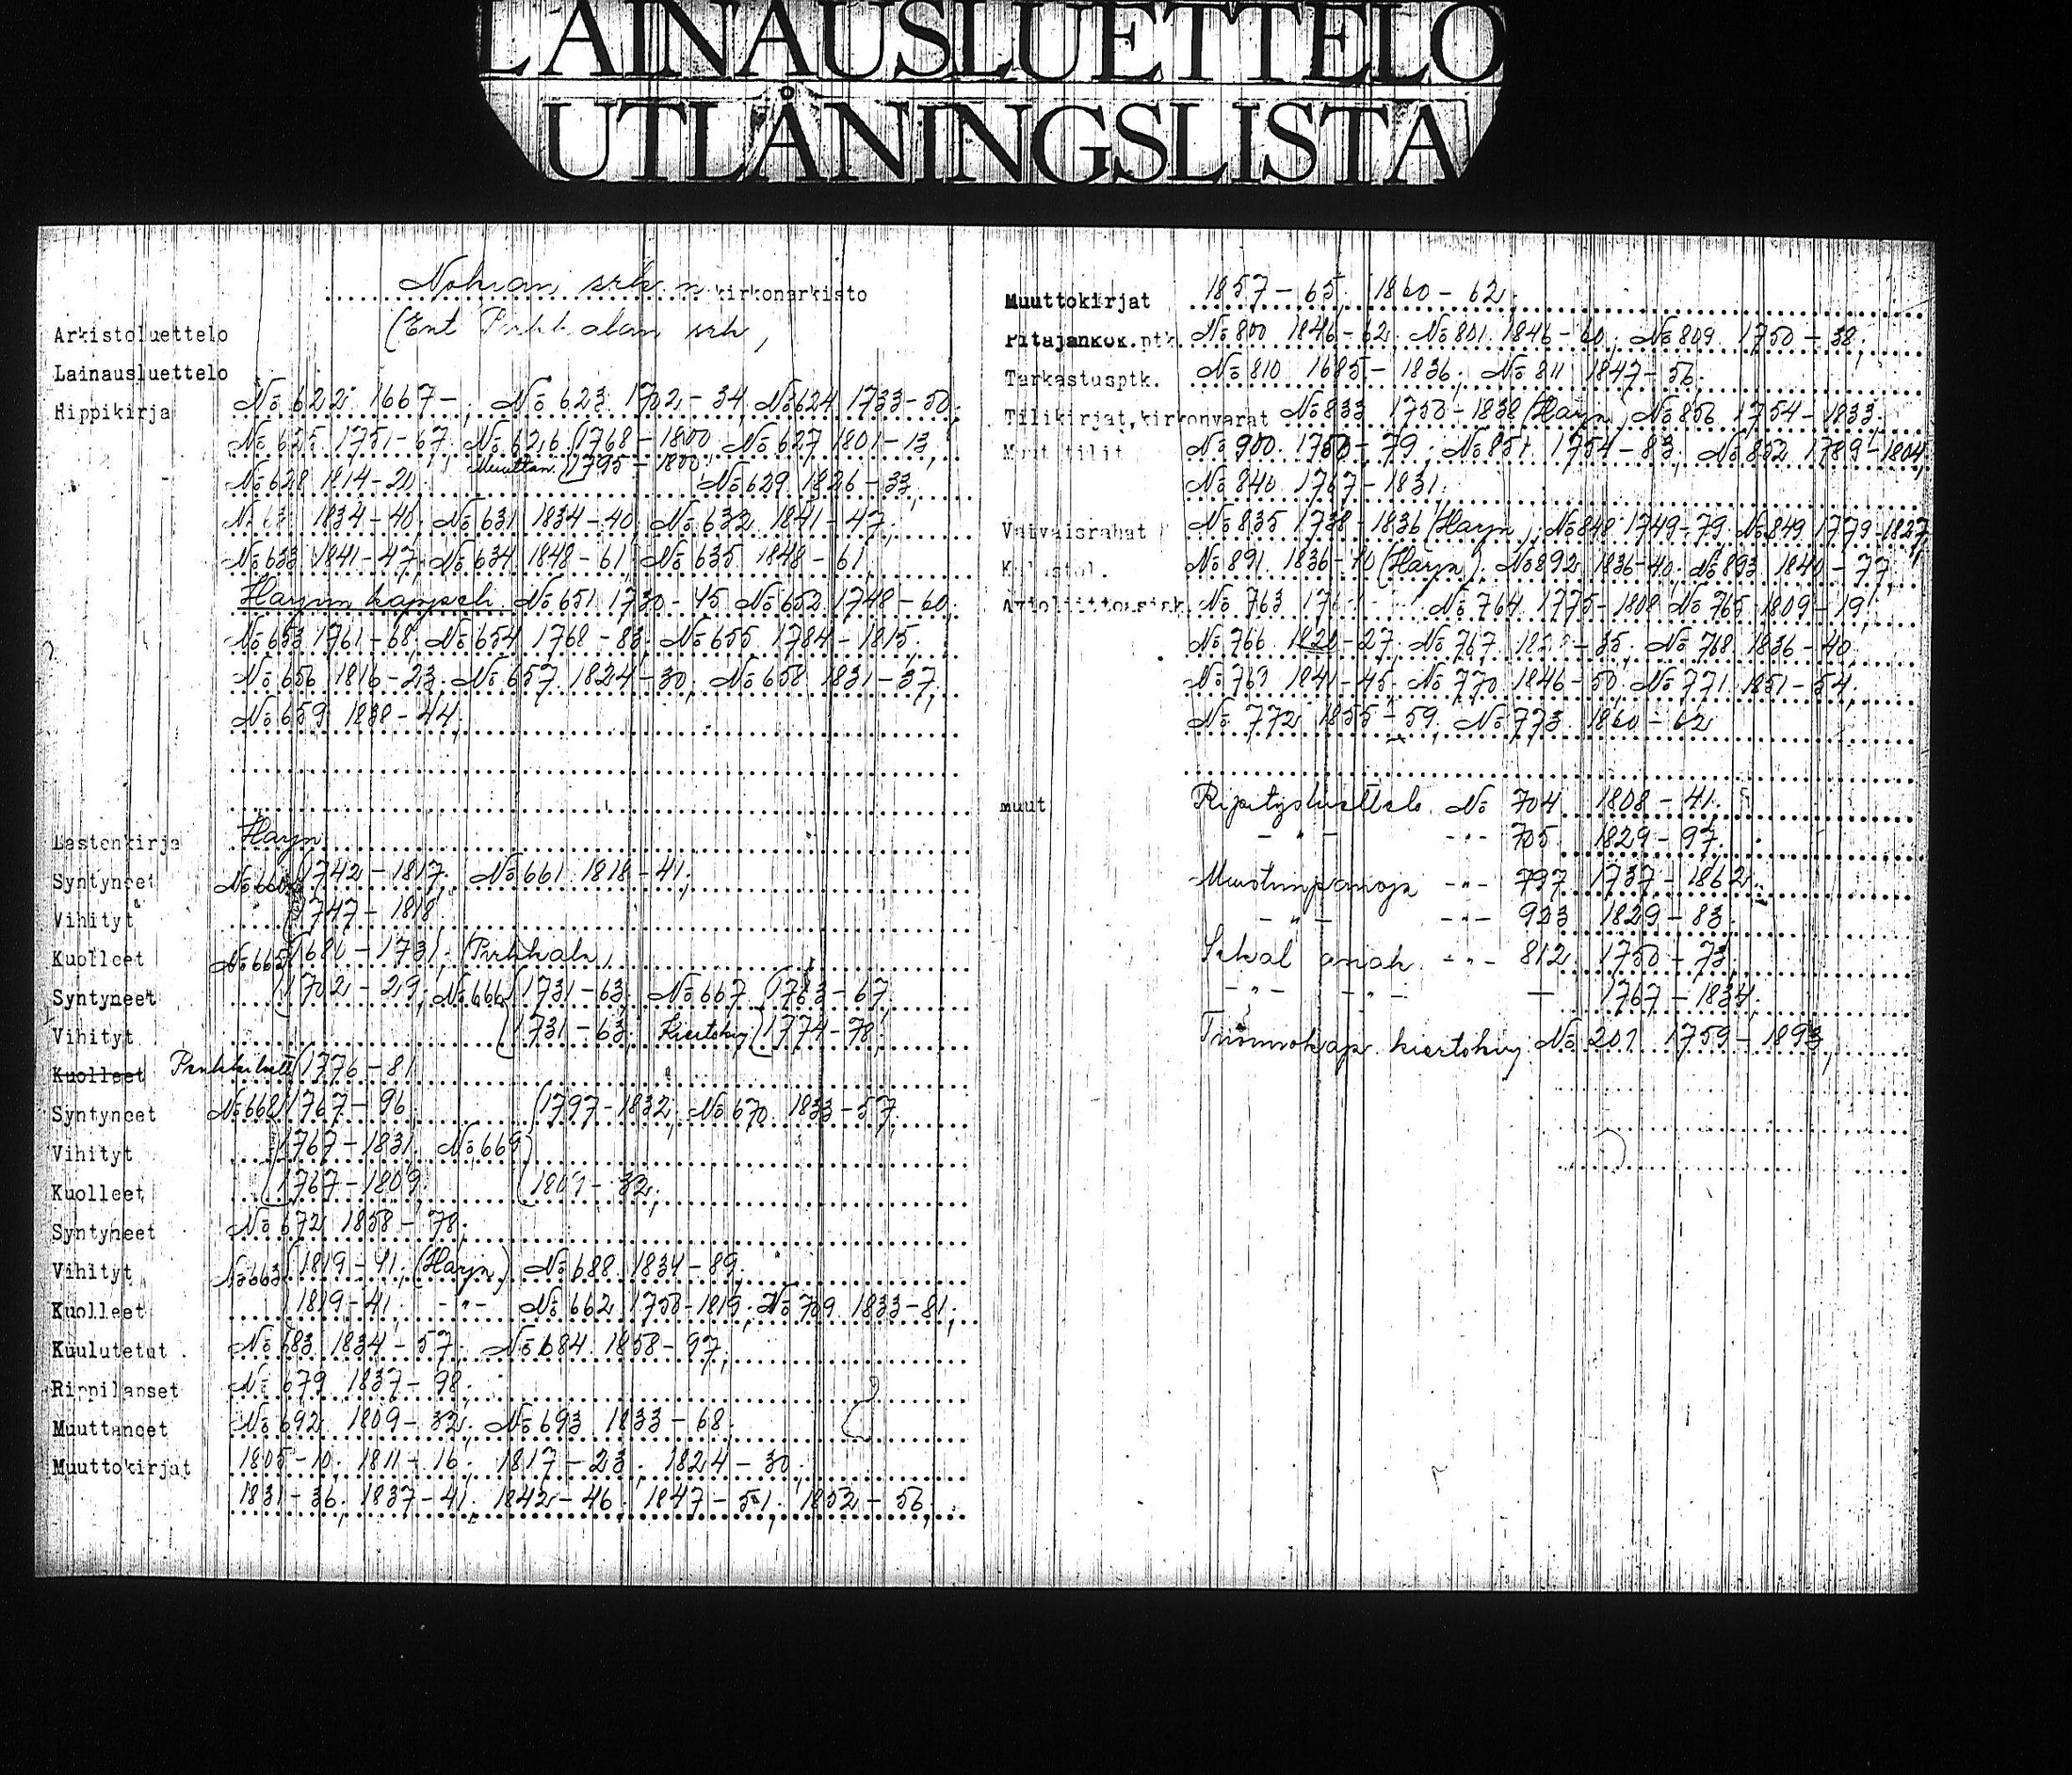 LAINAUSLUETTELO
UTLÅNINGSLISTA
Nokian srk n kirkonarkisto
(Ent Pirkkalan srk)
Arkistoluettelo
Lainausluettelo
Rippikirja No 622 1667-; No 623 1702-34, No 624 1733-50;
No 625 1751-67, No 626 (1768-1800 No 627 1801-13;
Muuttan. (1795-1800;
No 628 1814-20 No 629 1826-33,
1834-40; No 631 1834-40; No 632 1841-47;
No 633 1841-47; No 634 1848-61; No 635 1848-61
Harjun kappeli No 651 1730-45 No 652 1748-60;
No 653 1761-68, No 654 1768-83; No 655 1784-1815;
No 656 1816-23; No 657 1824-30; No 658 1831-37;
No 659 1838-44;
Lastenkirja Harjn
Syntyneet No 660 (1742-1817; No 661 1818-41;
Vihityt (1747-1818
Kuolleet No 665 (1686-1731; (Pirkkala)
Syntyneet (1702-29; No 666 (1731-63; No 667 (1763-67;
Vihityt (1731-63; Kiertokirj (1774-78;
Kuolleet (1776-81
Syntyneet No 668 (1767-96 (1797-1832; No 670 1833-57;
Vihityt (1767-1831 No 669
Kuolleet (1767-1809; (1809-32;
Syntyneet No 672 1858-78;
Vihityt No 663 (1819-41; (Harjn) No 688 1834-89;
Kuolleet (1819-41; -"- No 662 1750-1819; No 709 1833-81;
Kuulutetut No 683 1834-57; No 684 1858-97;
Rippilapset No 679 1837-98;
Muuttaneet No 692 1809-32; No 693 1833-68;
Muuttokirjat 1805-10; 1811-16; 1817-23; 1824-30;
1831-36; 1837-41; 1842-46; 1847-51; 1852-56;
Muuttokirjat 1857-65; 1860-62;
Pitäjänkok.ptk. No 800 1846-62; No 801 1846-60; No 809 1750-38;
Tarkastusptk. No 810 1685-1836; No 811 1847-56;
Tilikirjat,kirkonvarat No 833 1750-1838 (Harjn) No 850 1754-1833;
Muut tilit No 900 1750-79; No 851 1754-83; No 852 1789-1804;
No 840 1767-1831;
Vaivaisrahat No 835 1738-1836 (Harjn); No 848 1749-79 No 849 1779-1827;
No 891 1836-40 (Harjn); No 892 1836-40; No 893 1840-77;
No 763 No 764 1775-1808 No 765 1809-19;
No 766 1820-27; No 767 -35; No 768 1836-40
No 769 1841-45; No 770 1846-50; No 771 1851-54;
No 772 1855-59; No 773 1860-62
muut Ripitysluettelo No 704 1808-41;
-"- -"- 705 1829-97;
Muistiinpanoja -"- 797 1737-1862;
-"- -"- 923 1829-83;
-"- 812 1750-73;
-"- -"- - 1767-1834;
Tuomiokap kiertokirj No 201 1759-1893;